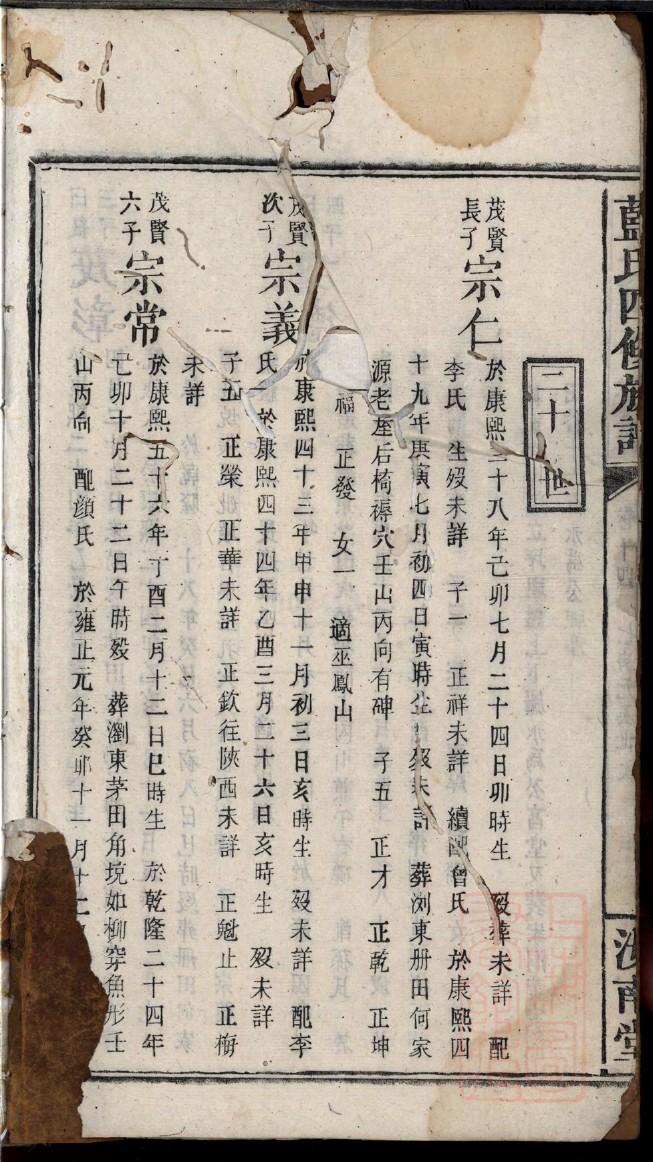 藍氏四修族譜
汝南堂
二十 世
茂賢
長子
宗仁
於康熙三十八年己卯七月二十四日卯時生 歿葬未詳 配
李氏 生歿未詳 子一 正祥未詳 續配曾氏 於康熙四
十九年庚寅七月初四日寅時生 歿未詳 葬浏東册田何家
源老屋后椅褥穴壬山丙向有碑 子五 正才 正乾 正坤
福 正發 女一 適巫鳳山
茂賢
次子
宗義
於康熙四十三年甲申十月初三日亥時生 歿未詳 配李
氏 於康熙四十四年乙酉三月二十六日亥時生 歿未詳
子五 正榮 正華未詳 正欽往陝西未詳 正魁止 正梅
未詳
茂賢
六子
宗常
於康熙五十六年丁酉二月十二日巳時生 於乾隆二十四年
己卯十月二十二日午時歿 葬瀏東茅田角境如柳穿魚形壬
山丙向 配顔氏 於雍正元年癸卯十一月十二